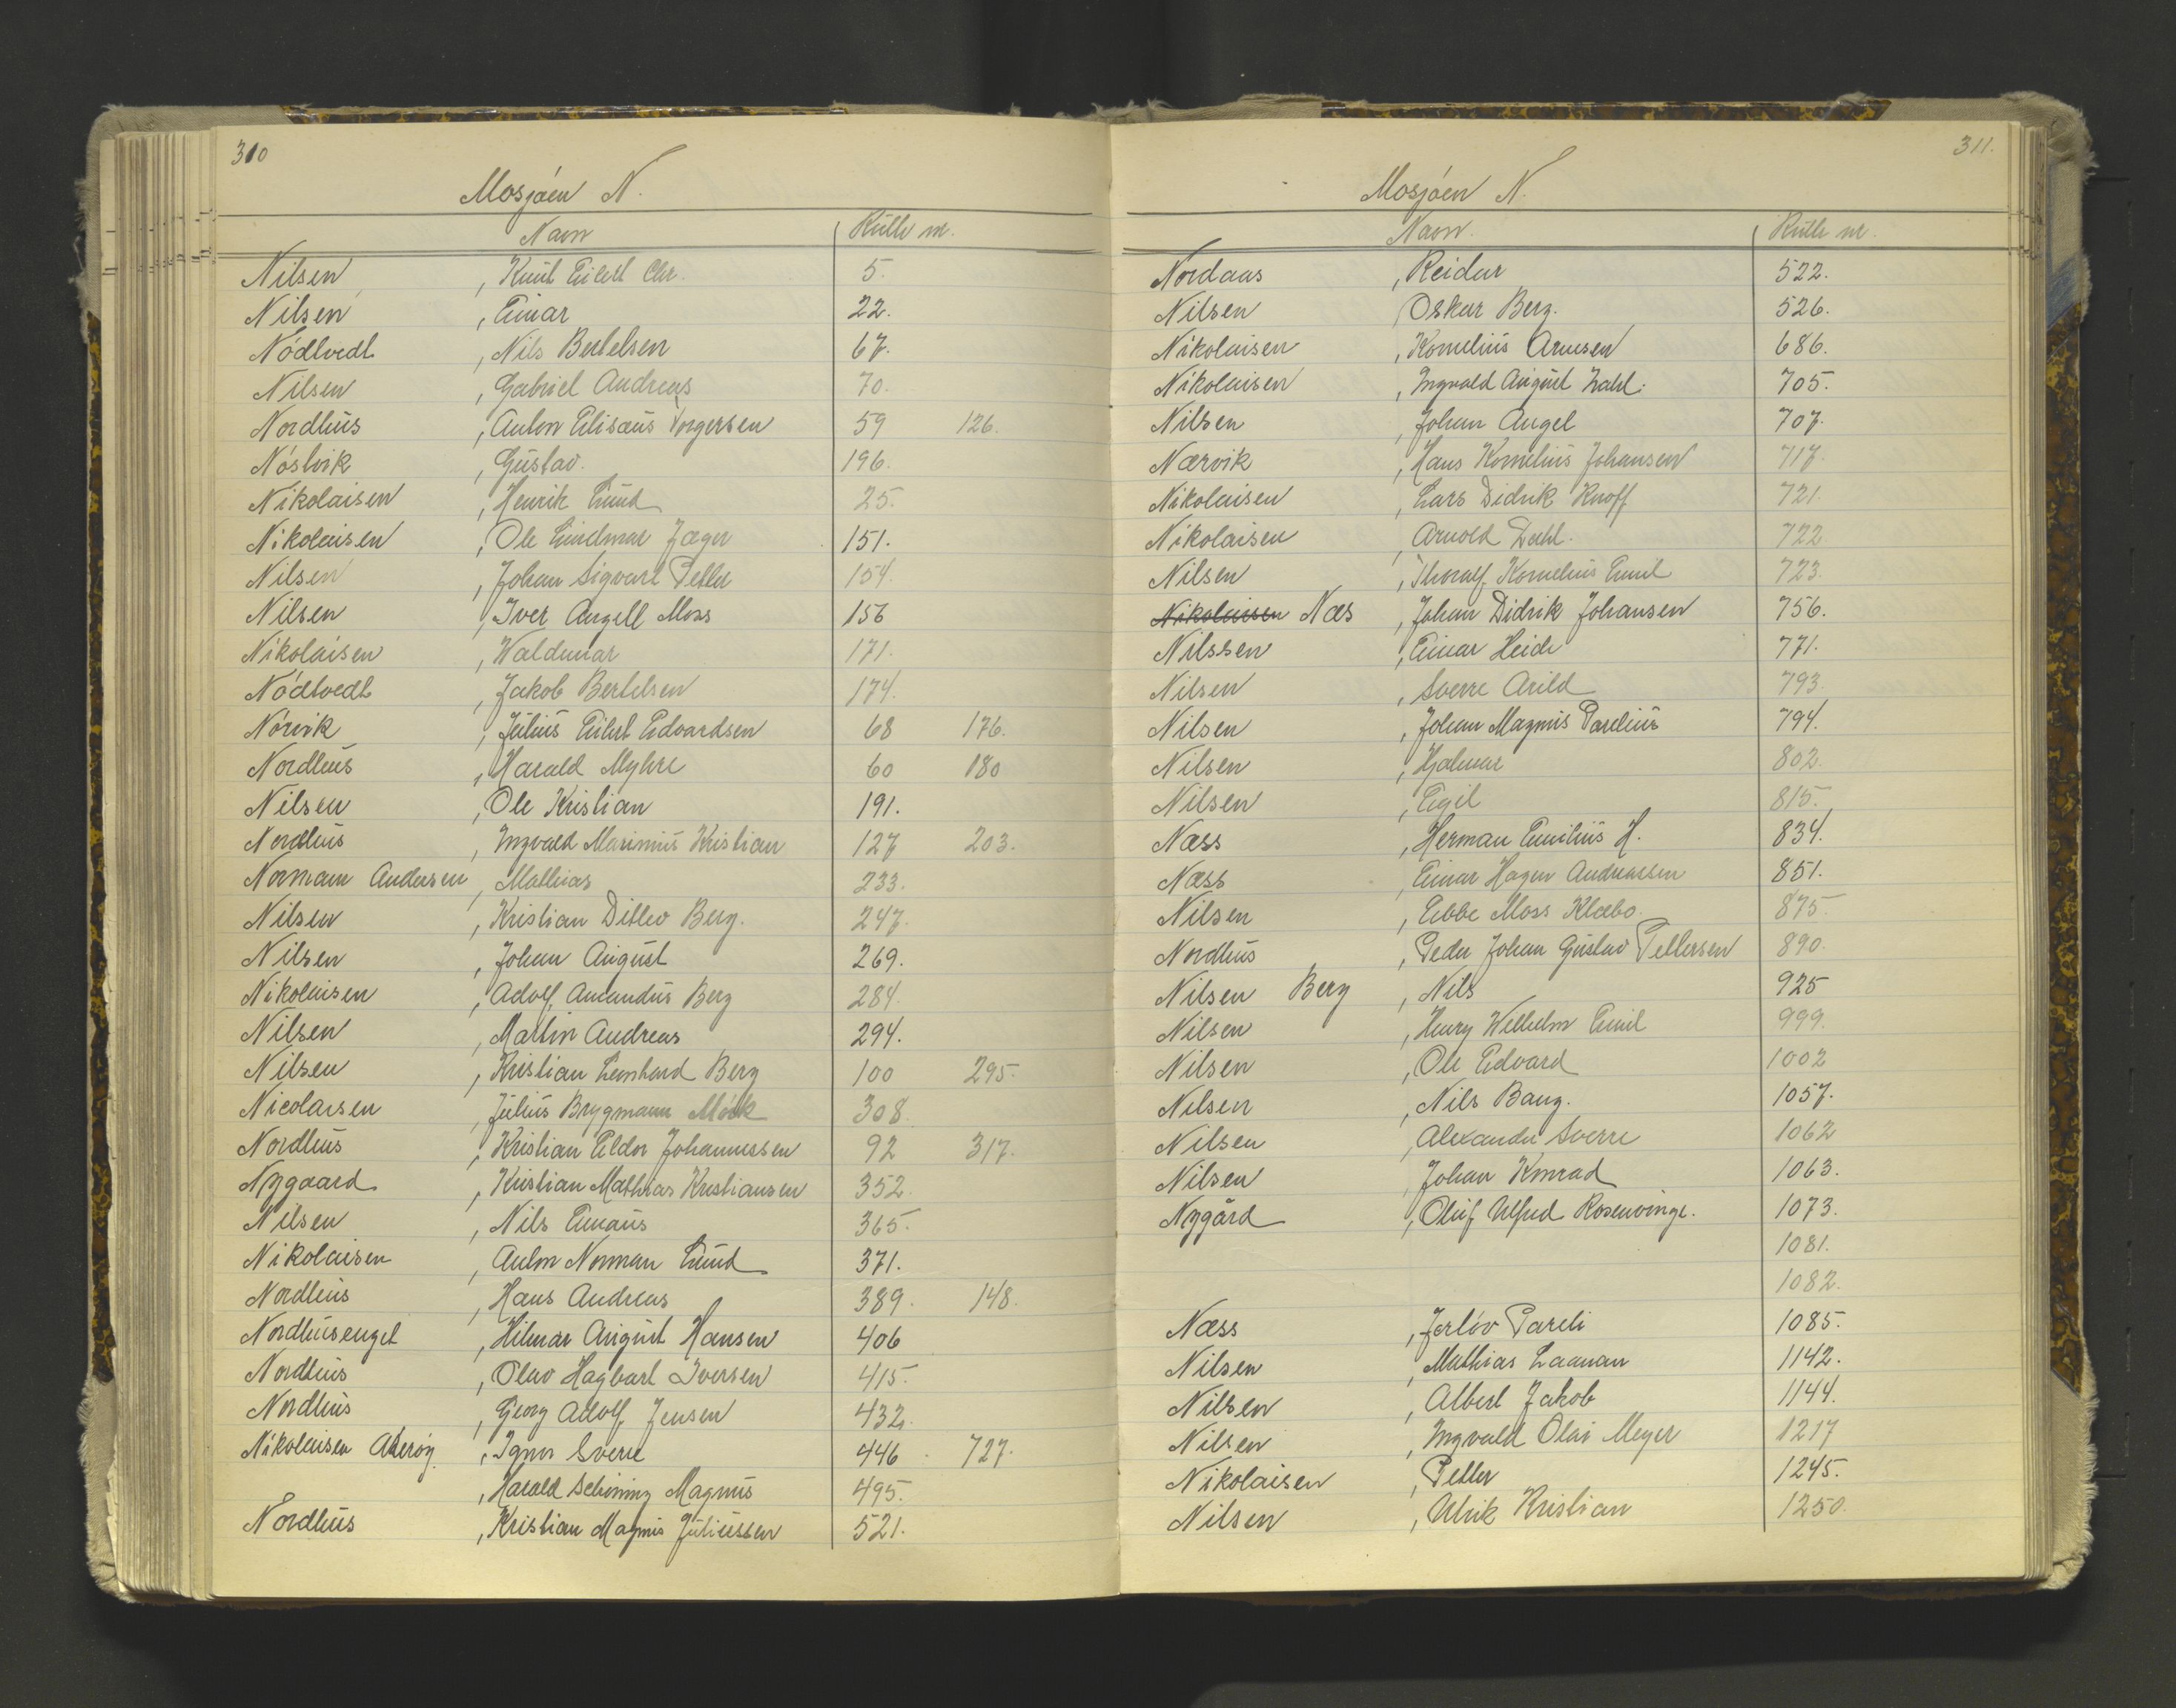 310
Mosjöen N.
Navn Rulle nr.
Nilsen, Knut Eilert Chr. 5.
Nilsen, Einar 22.
Nödtvedt, Nils Bertelsen 67.
Nilsen, Gabriel Andreas 70.
Nordhus, Anton Elisæus Torgersen 59 126.
Nöstvik, Gustav. 196.
Nikolaisen, Henrik Lund 25.
Nikolaisen, Ole Lindmar Jæger 151.
Nilsen, Johan Sigvart Petter 154.
Nilsen, Iver Angell Moss 156
Nikolaisen, Waldemar 171.
Nödtvedt, Jakob Bertelsen 174.
Nörvik, Julius Eilert Edvardsen 68 176.
Nordhus, Harald Myhre 60 180
Nilsen, Ole Kristian 191.
Nordhus, Ingvald Marinius Kristian 127 203.
Normann Andersen, Mathias 233.
Nilsen, Kristian Ditlev Berg. 247.
Nilsen, Johan August 269.
Nikolaisen, Adolf Amandus Berg 284.
Nilsen, Martin Andreas 294.
Nilsen, Kristian Leonhard Berg 100 295.
Nicolaisen, Julius Brygmann 308.
Nordhus, Kristian Eldor Johannessen 92 317.
Nygaard, Kristian Mathias Kristiansen 352.
Nilsen, Nils Emaus 365.
Nikolaisen, Anton Norman Lund 371.
Nordhus, Hans Andreas 389. 148.
Nordhusenget, Hilmar August Hansen 406
Nordhus, Olav Hagbart Iversen 415.
Nordhus, Georg Adolf Jensen 432.
Nikolaisen, Sverre 446. 727.
, Harald Schöning Magnus 495.
Nordhus, Kristian Magnus Juliussen 521.
311.
Mosjöen N.
Navn. Rulle nr.
Nordaas, Reidar 522.
Nilsen Oskar Berg. 526.
Nikolaisen, Kornelius Arnesen 686.
Nikolaisen, Ingvald August Zahl. 705.
Nilsen, Johan Angel 707.
Nærvik, Hans Kornelius Johansen 717.
Nikolaisen, Lars Didrik Knoff 721.
Nikolaisen, Arnold Dahl. 722
Nilsen, Thoralf Kornelius Emil 723.
Nikolaisen Næs, Johan Didrik Johansen 756.
Nilssen, Einar Heide 771.
Nilsen, Sverre Arild 793.
Nilsen, Johan Magnus Parelius 794.
Nilsen, Hjalmar 802.
Nilsen, Egil 815.
Næss, Herman Emilius H. 834.
Næss, Einar Hagen Andreassen 851.
Nilsen, Ebbe Moss Klæbo. 875.
Nordhus, Peder Johan Gustav Pettersen 890.
Nilsen Berg, Nils 925
Nilsen, Henry Wilhelm Emil 999.
Nilsen, Ole Edvard 1002
Nilsen, Nils Bang. 1057.
Nilsen, Alexander Sverre 1062
Nilsen, Johan Konrad 1063.
Nygård, Oluf Alfred Rosenvinge. 1073.
1081.
1082.
Næss, Jerlöv Pareli 1085.
Nilsen, Mathias Laaman 1142.
Nilsen, Albert Jakob 1144.
Nilsen, Ingvald Olai Meyer 1217
Nikolaisen, Petter 1245.
Nilsen, Ulrik Kristian 1250.